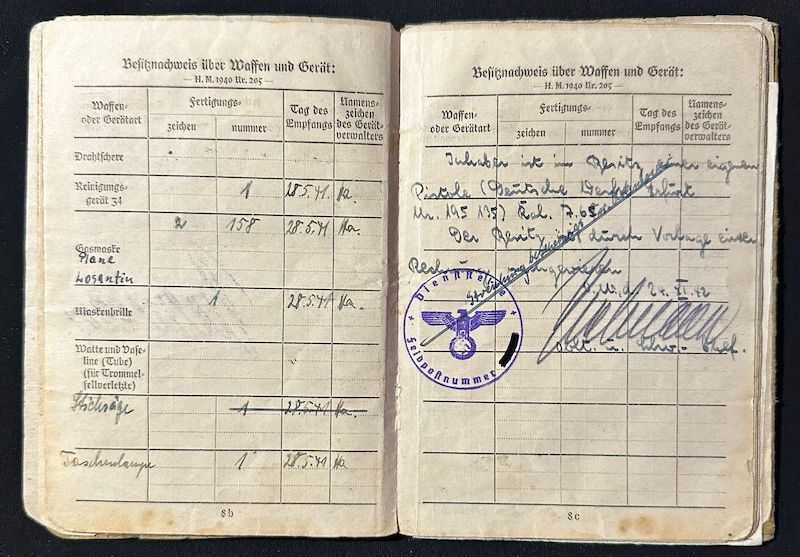 Besitznachweis über Waffen und Gerät:
— H. M. 1940 Nr. 205 —
Waffen- oder Gerätart
Fertigungs-
zeichen
nummer
Tag des Empfangs
Namens- zeichen des Gerät- verwalters
Drahtschere
Reinigungs- gerät 34 1 28.5.41 Ha.
Gasmaske 2 158 28.5.41 Ha.
Plane
Losantin
Maskenbrille 1 28.5.41 Ha.
Watte und Vase- line (Tube) (für Trommel- fellverletzte)
Stichsäge 1 28.5.41 Ha.
Taschenlampe 1 28.5.41 Ha
8b
Besitznachweis über Waffen und Gerät:
— H. M. 1940 Nr. 205 —
Waffen- oder Gerätart
Fertigungs-
zeichen
nummer
Tag des Empfangs
Namens- zeichen des Gerät- verwalters
Inhaber ist im Besitz einer eigenen
Pistole (Deutsche Werke Erfurt
Nr. 195 135) Kal. 7.65
Der Besitz ist durch Vorlage einer
Streichung
O.U. d. 24. XI. 42
Oblt. u. Schw.- Chef.
Dienststelle
Feldpostnummer
8c